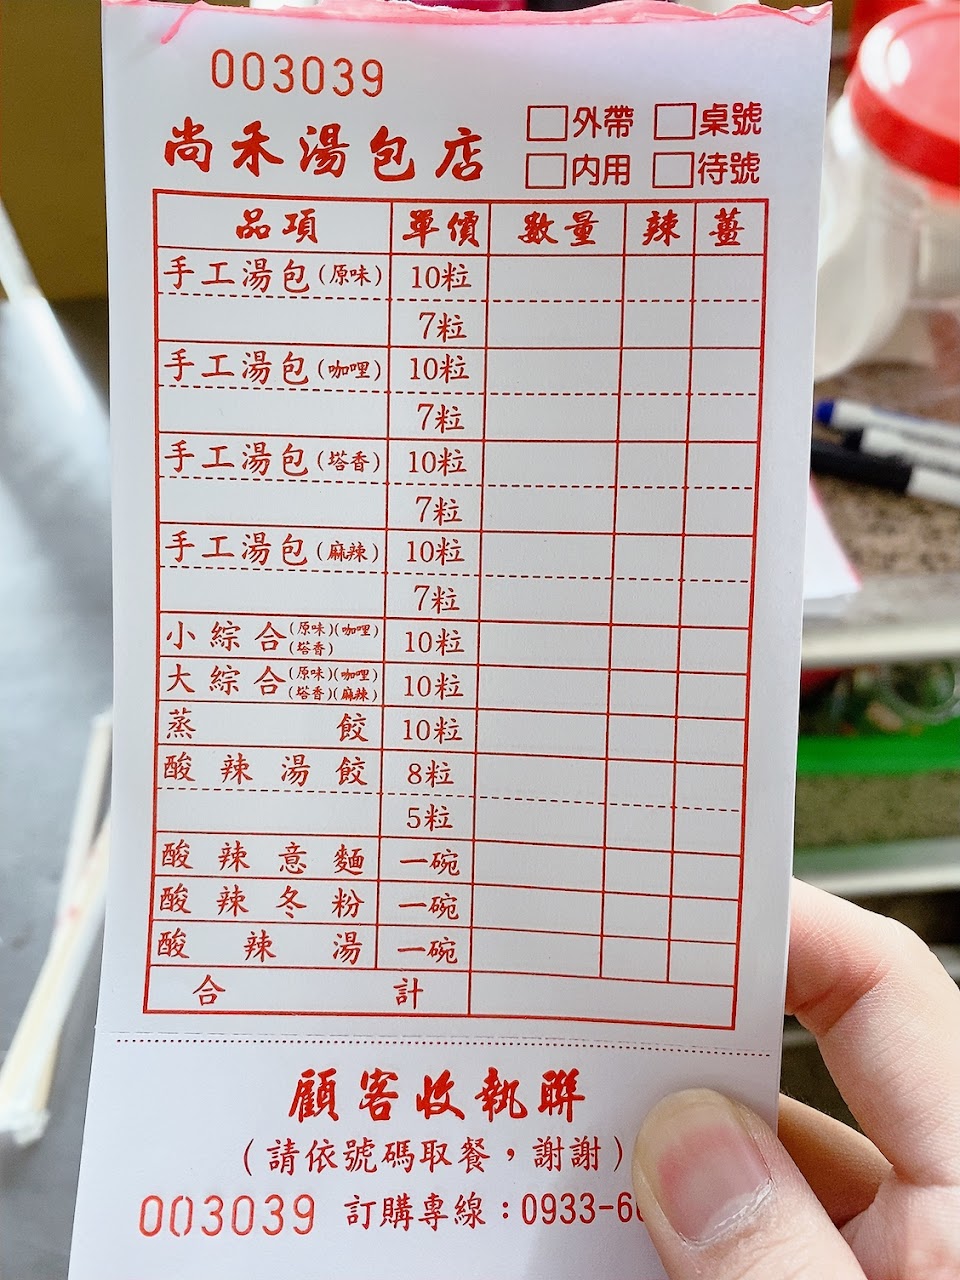 003039
尚禾湯包店
□外帶 □桌號
□內用 □待號
品項 單價 數量 辣 薑
手工湯包(原味) 10粒
7粒
手工湯包(咖哩) 10粒
7粒
手工湯包(塔香) 10粒
7粒
手工湯包(麻辣) 10粒
7粒
小綜合(原味)(咖哩)(塔香) 10粒
大綜合(原味)(咖哩)(塔香)(麻辣) 10粒
蒸餃 10粒
酸辣湯餃 8粒
5粒
酸辣意麵 一碗
酸辣冬粉 一碗
酸辣湯 一碗
合計
顧客收執聯
(請依號碼取餐，謝謝)
003039 訂購專線：0933-6